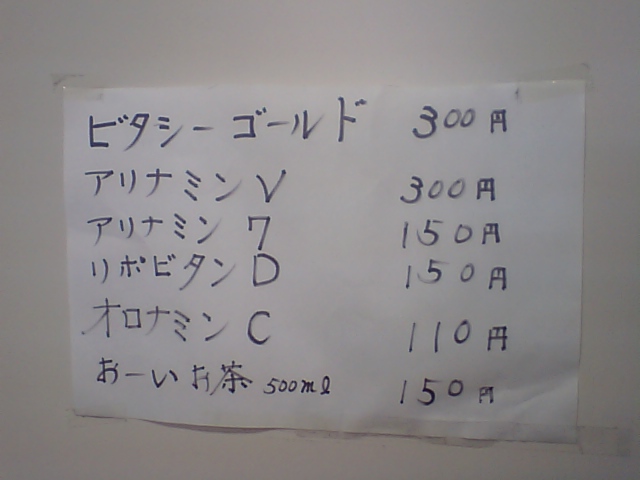 ビタシーゴールド 300円
アリナミンV 300円
アリナミン7 150円
リポビタンD 150円
オロナミンC 110円
おーいお茶 500ml 150円